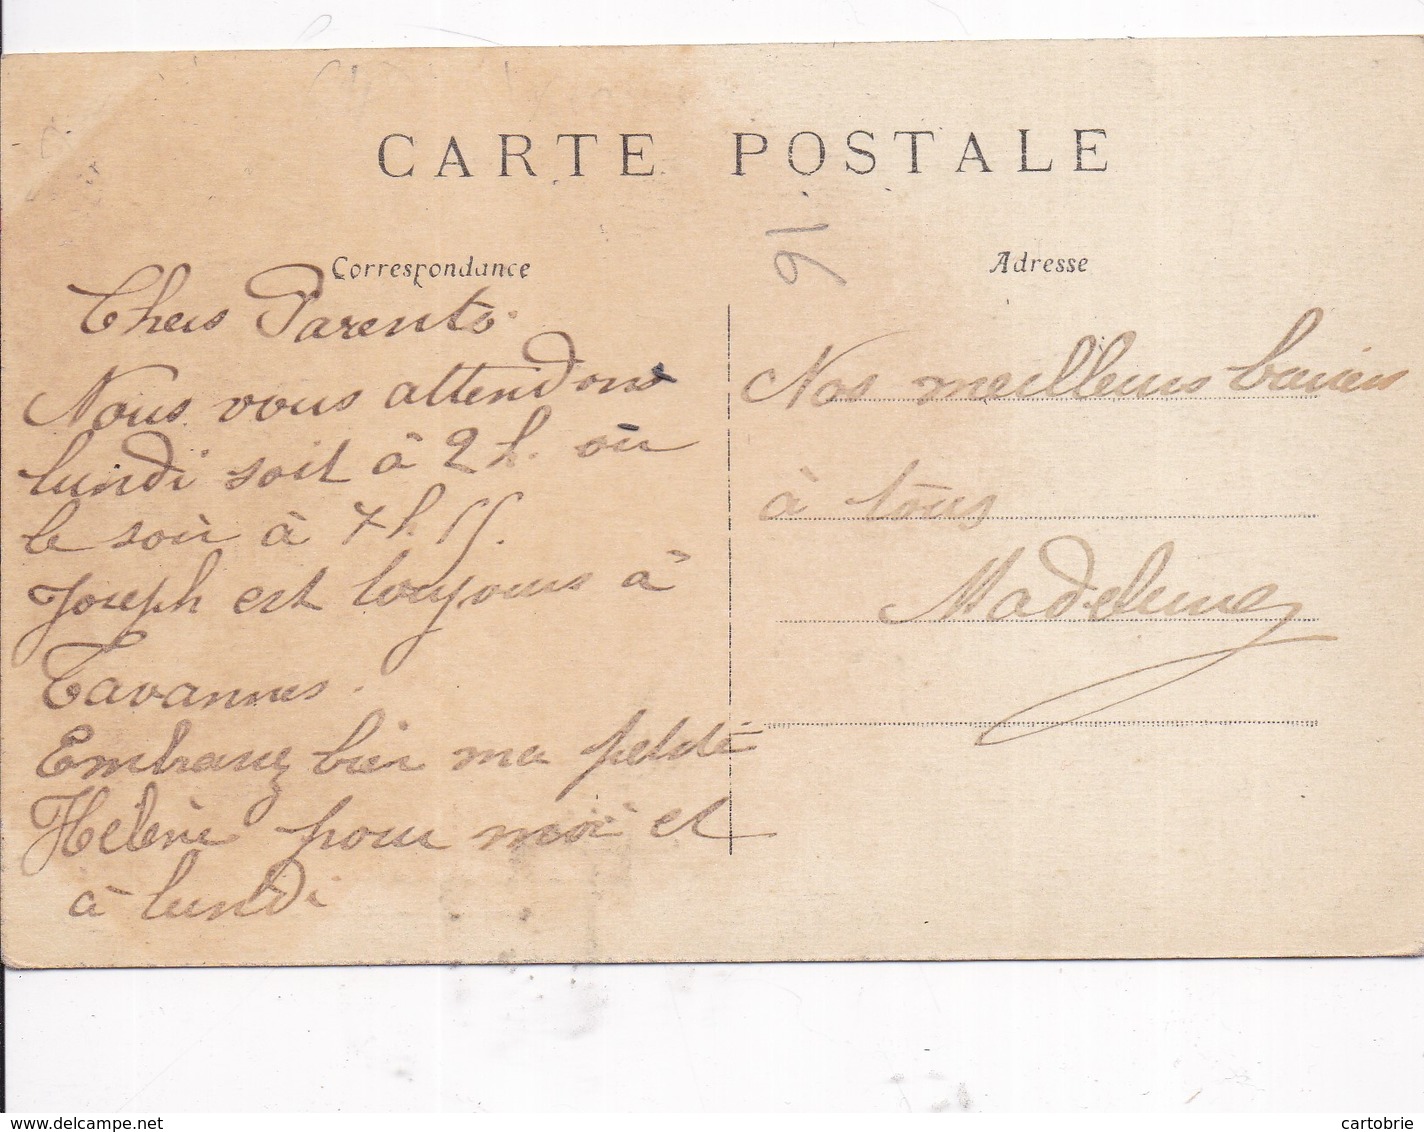 CARTE POSTALE
91
Correspondance
Chers Parents.
Nous vous attendons
lundi soit à 2 h. ou
le soir à 7 h. 55.
Joseph est toujours à
Tavannes.
Embrassez bien ma petite
Hélène pour moi et
à lundi
Adresse
Nos meilleurs baisers
à tous
Madeleine
www.delcampe.net
cartobrie